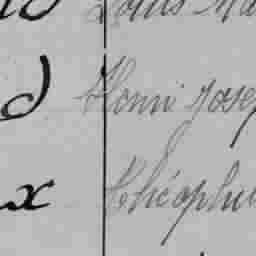 Louis Ma
d Henri Josep
x Théophi